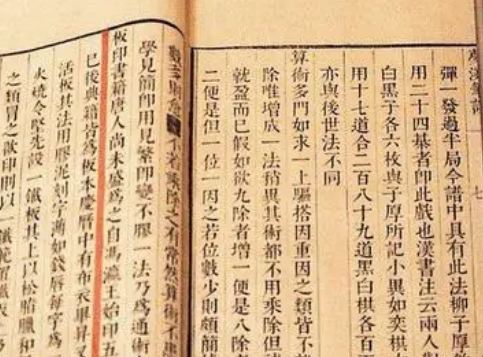 七
彈一發過半局今譜中具有此法柳子厚
用二十四棊者即此戲也漢書注云兩人
白黑子各六枚與子厚所記小異如奕棋
用十七道合二百八十九道黑白棋各百
亦與後世法不同
算術多門如求一上驅搭因重因之類皆不
除唯增成一法稍異其術都不用乘除但補
就盈而已假如欲九除者增一便是八除者
二便是但一位一因之若位數少則頗簡
不若乘除之有常然算術不患
學見簡即用見繁即變不膠一法乃爲通術
板印書籍唐人尚未盛爲之自馮瀛王始印五
已後典籍皆爲板本慶曆中有布衣畢昇又
活板其法用膠泥刻字薄如錢唇每字爲
火燒令堅先設一鐵板其上以松脂臘和
之類冒之欲印則以一鐵範置鐵板